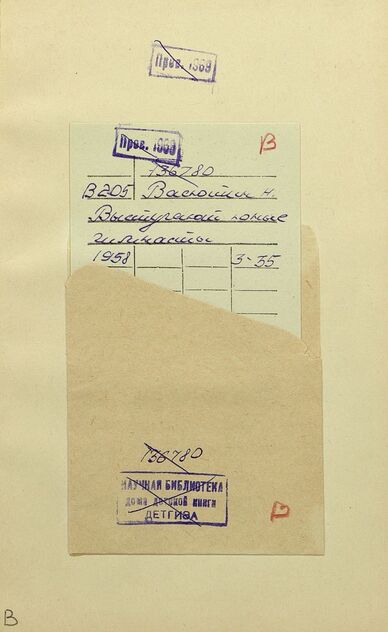 Пров. 1969
Пров. 1969
В
136780
В205 Васютин Н.
Выступают юные
гимнасты
1958 3-35
136780
НАУЧНАЯ БИБЛИОТЕКА
дома детской книги
ДЕТГИЗА
В
В